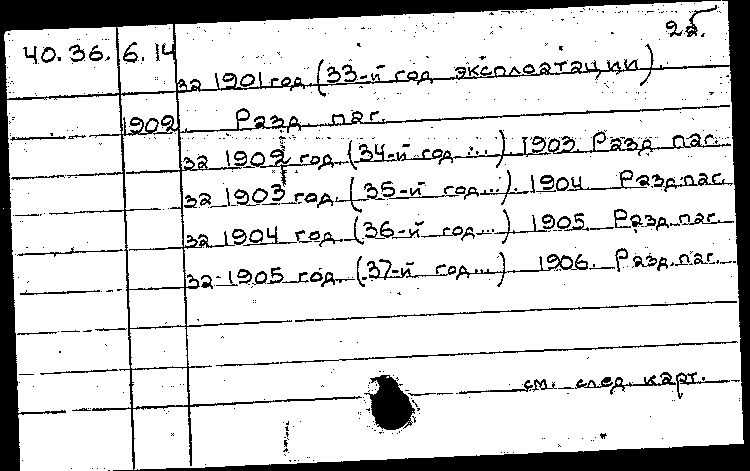 22.
40.36. 6.14
за 1901 год (33-й год эксплоатации).
1902. Разд. паг.
за 1902 год (34-й год ...). 1903. Разд. паг.
за 1903 год. (35-й год...). 1904 Разд.паг.
за 1904 год (36-й год...). 1905. Разд.паг.
за 1905 год. (37-й год...). 1906. Разд.паг.
см. след. карт.